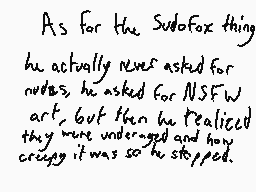 As for the Sudofox thing
he actually never asked for
nudes, he asked for NSFW
art, but then he realized
they were underaged and how
creepy it was so he stopped.